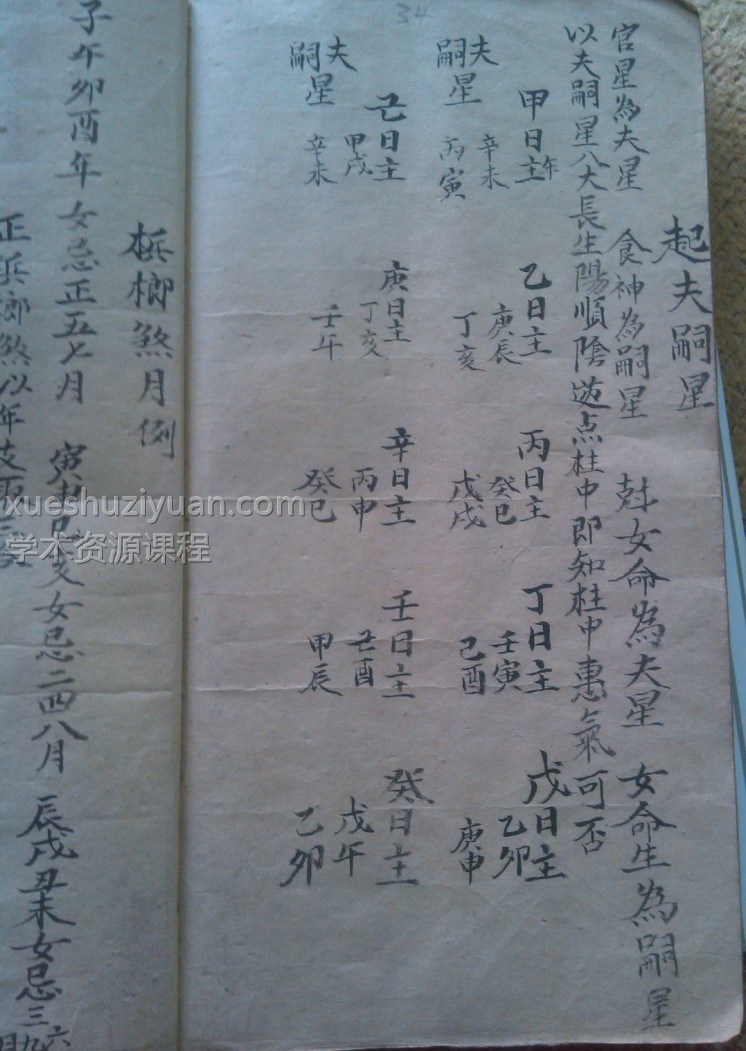 34
起夫嗣星
官星為夫星　食神為嗣星　尅女命為夫星　女命生為嗣星
以夫嗣星八大長生陽順陰逆点柱中即知柱中惠氣可否
甲日主年　乙日主　丙日主　丁日主　戊日主
夫星　辛未　庚辰　癸巳　壬寅　乙卯
嗣　丙寅　丁亥　戊戌　己酉　庚申
己日主　庚日主　辛日主　壬日主　癸日主
夫星　甲戌　丁亥　丙申　己酉　戊午
嗣　辛未　壬午　癸巳　甲辰　乙卯
梹榔煞月例
子午卯酉年女忌正五七月　寅申巳亥女忌二四八月　辰戌丑未女忌三六九月
正梹榔煞以年支
xueshuziyuan.com
学术资源课程